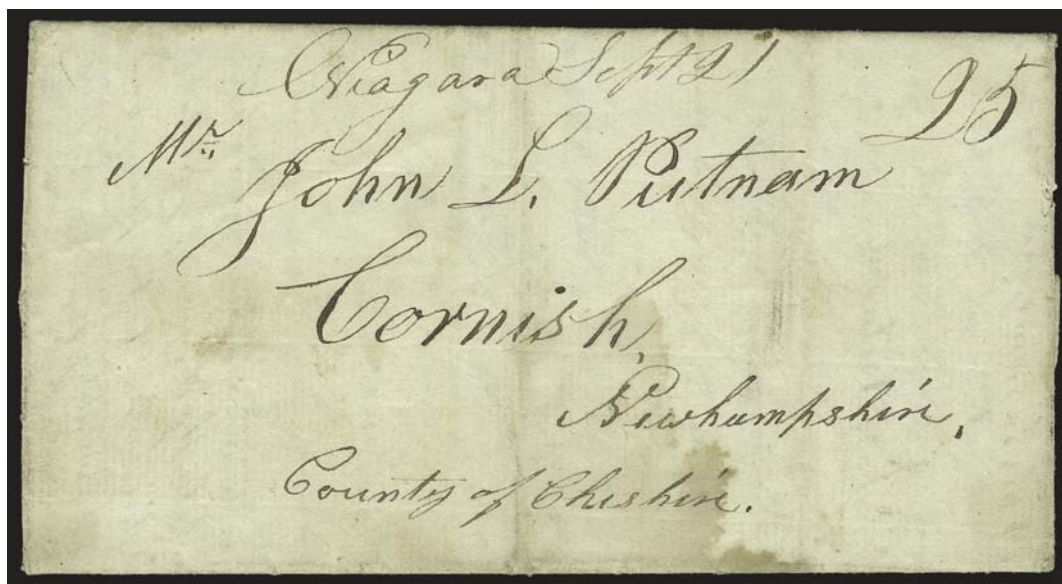 Niagara Sept 21
25
Mr.
John L. Putnam
Cornish,
Newhampshire,
County of Cheshire.